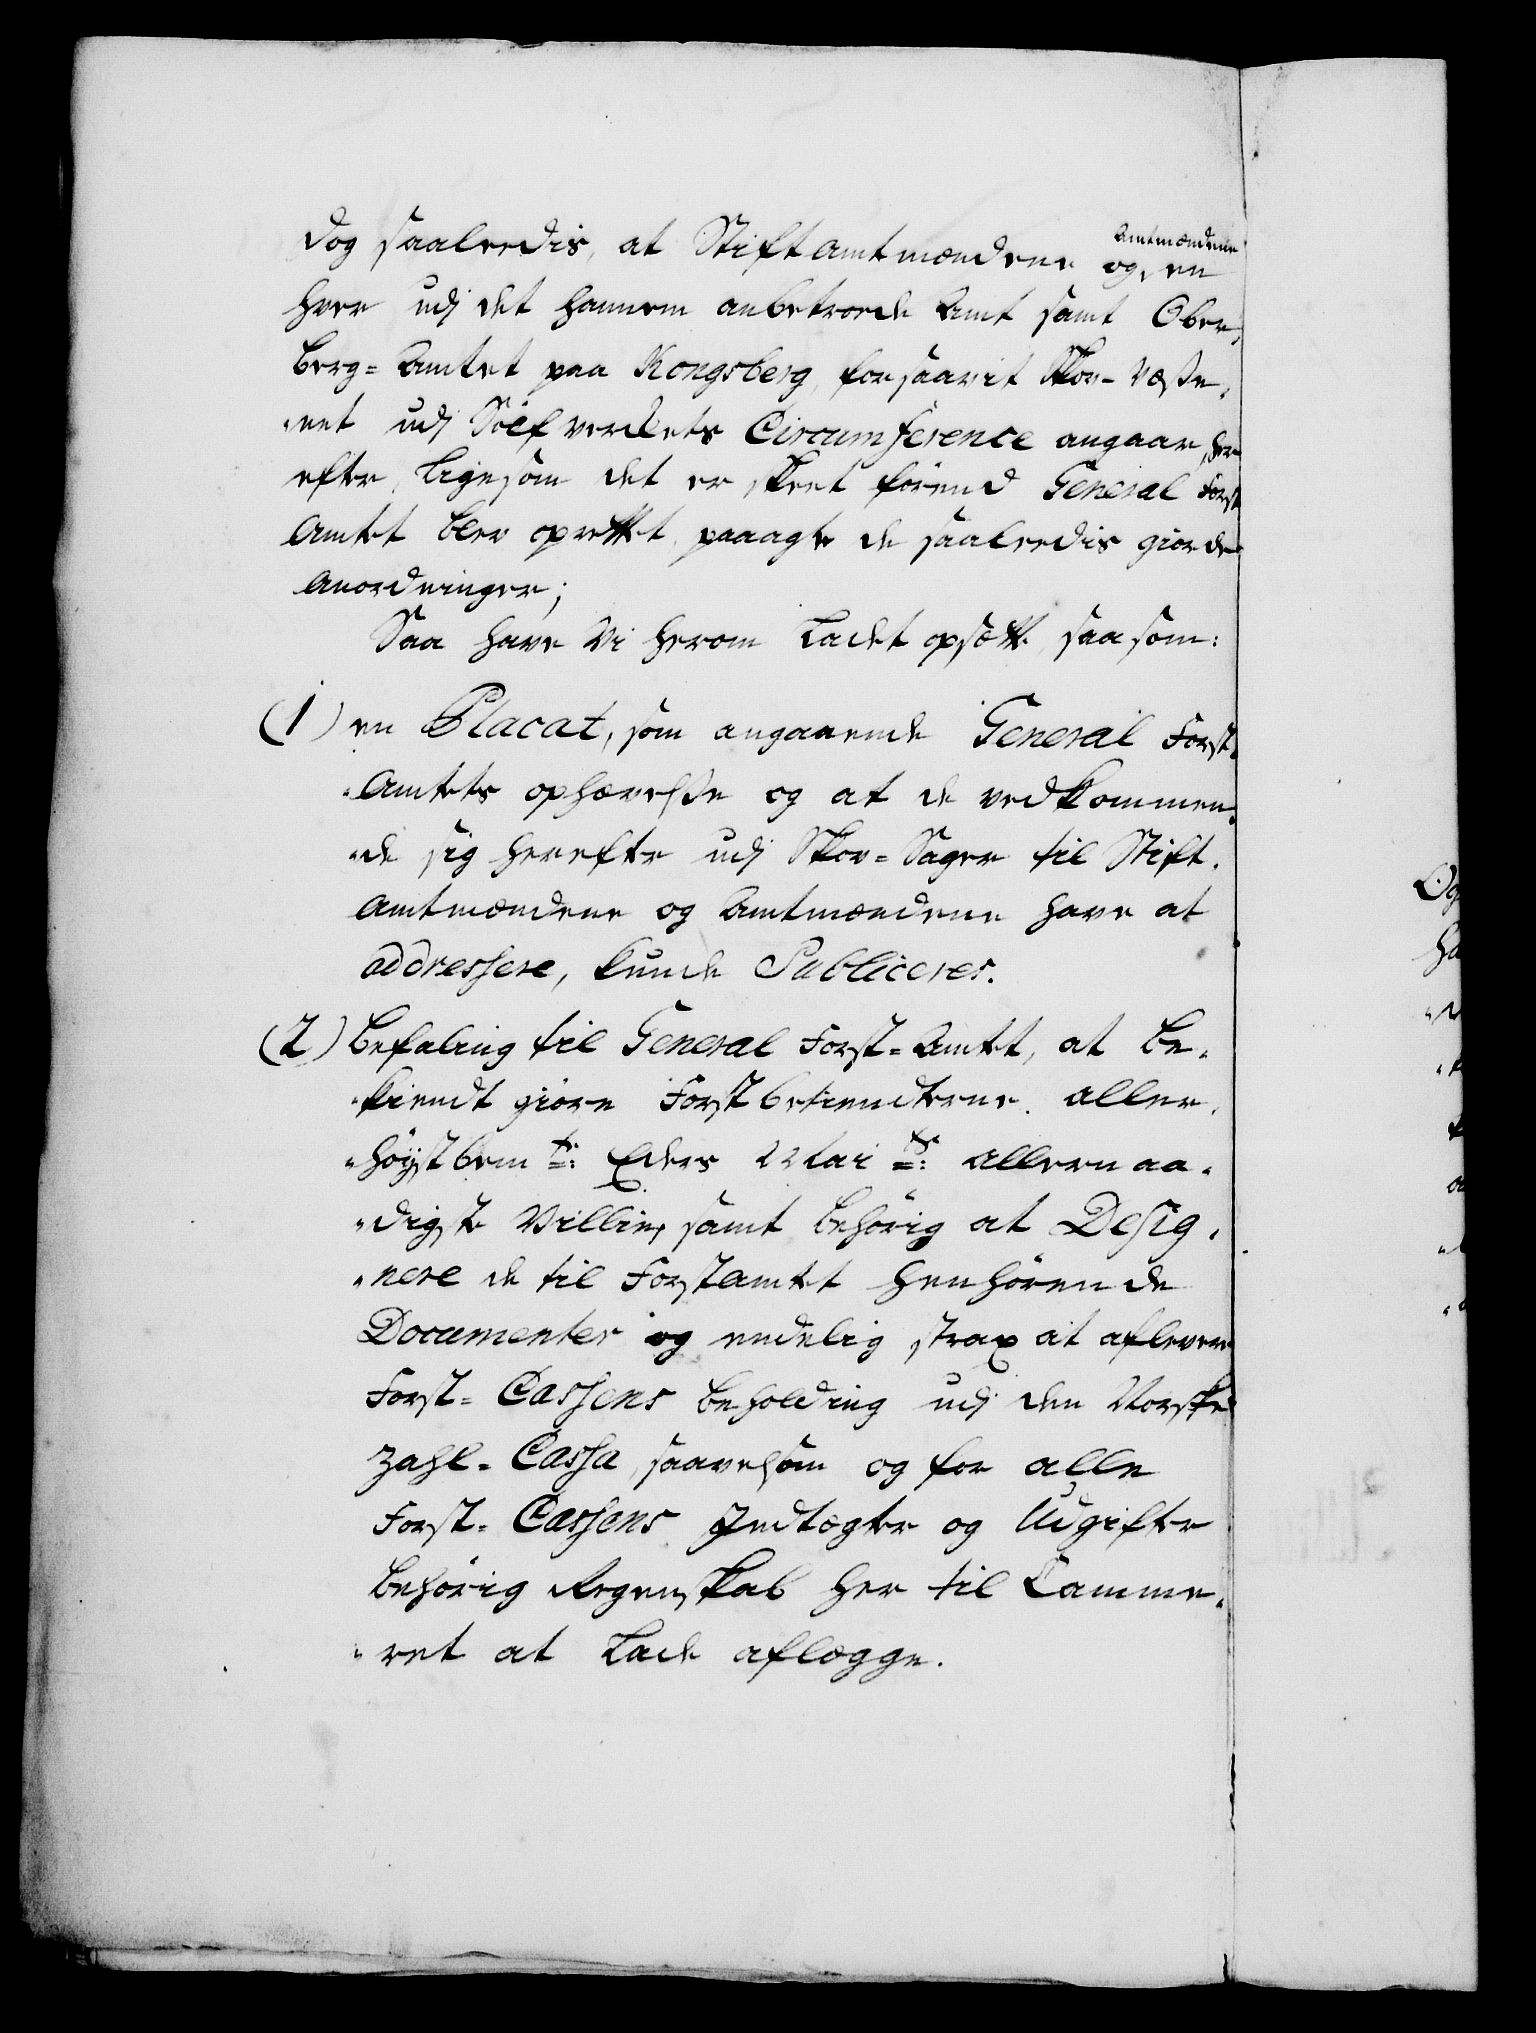 dog saaleedis, at Stiftamtmændene og Amtmændene en
hver udj det hannem anbetroede Amt samt Ober
berg= Amtet paa Kongsberg, forsaavit Skov- Væße,
„net udj Sölfverkets Circumference angaar, her
efter, ligesom det er skeet förend General Forst
Amtet blev oprettet, paaagte de saaleedis giorde
Anordninger;
Saa have Vi herom ladet opsætte, saasom:
(1) en Placat, som angaaende General Forst.
„Amtets ophævelße og at de vedkommen„
„de sig herefter udj Skov= Sager til Stift.
Amtmændene og Amtmændene have at
addressere, kunde Publiceres.
(2) Befaling til General Forst= Amtet, at be„
„kiendt giöre Forstbetiendterne aller„
„höystbem te: Eders Mai ts: allernaa„
„digste Villie, samt behörig at Desig„
„nere de til Forstamtet henhörende
Documenter og endelig strax at aflevere
Forst= Cassens beholding udj den Norske
Zahl= Cassa, saavelsom og for alle
Forst= Cassens Indtægter og Udgifter
behörig Regenskab her til Camme„
„ret at lade aflægge.